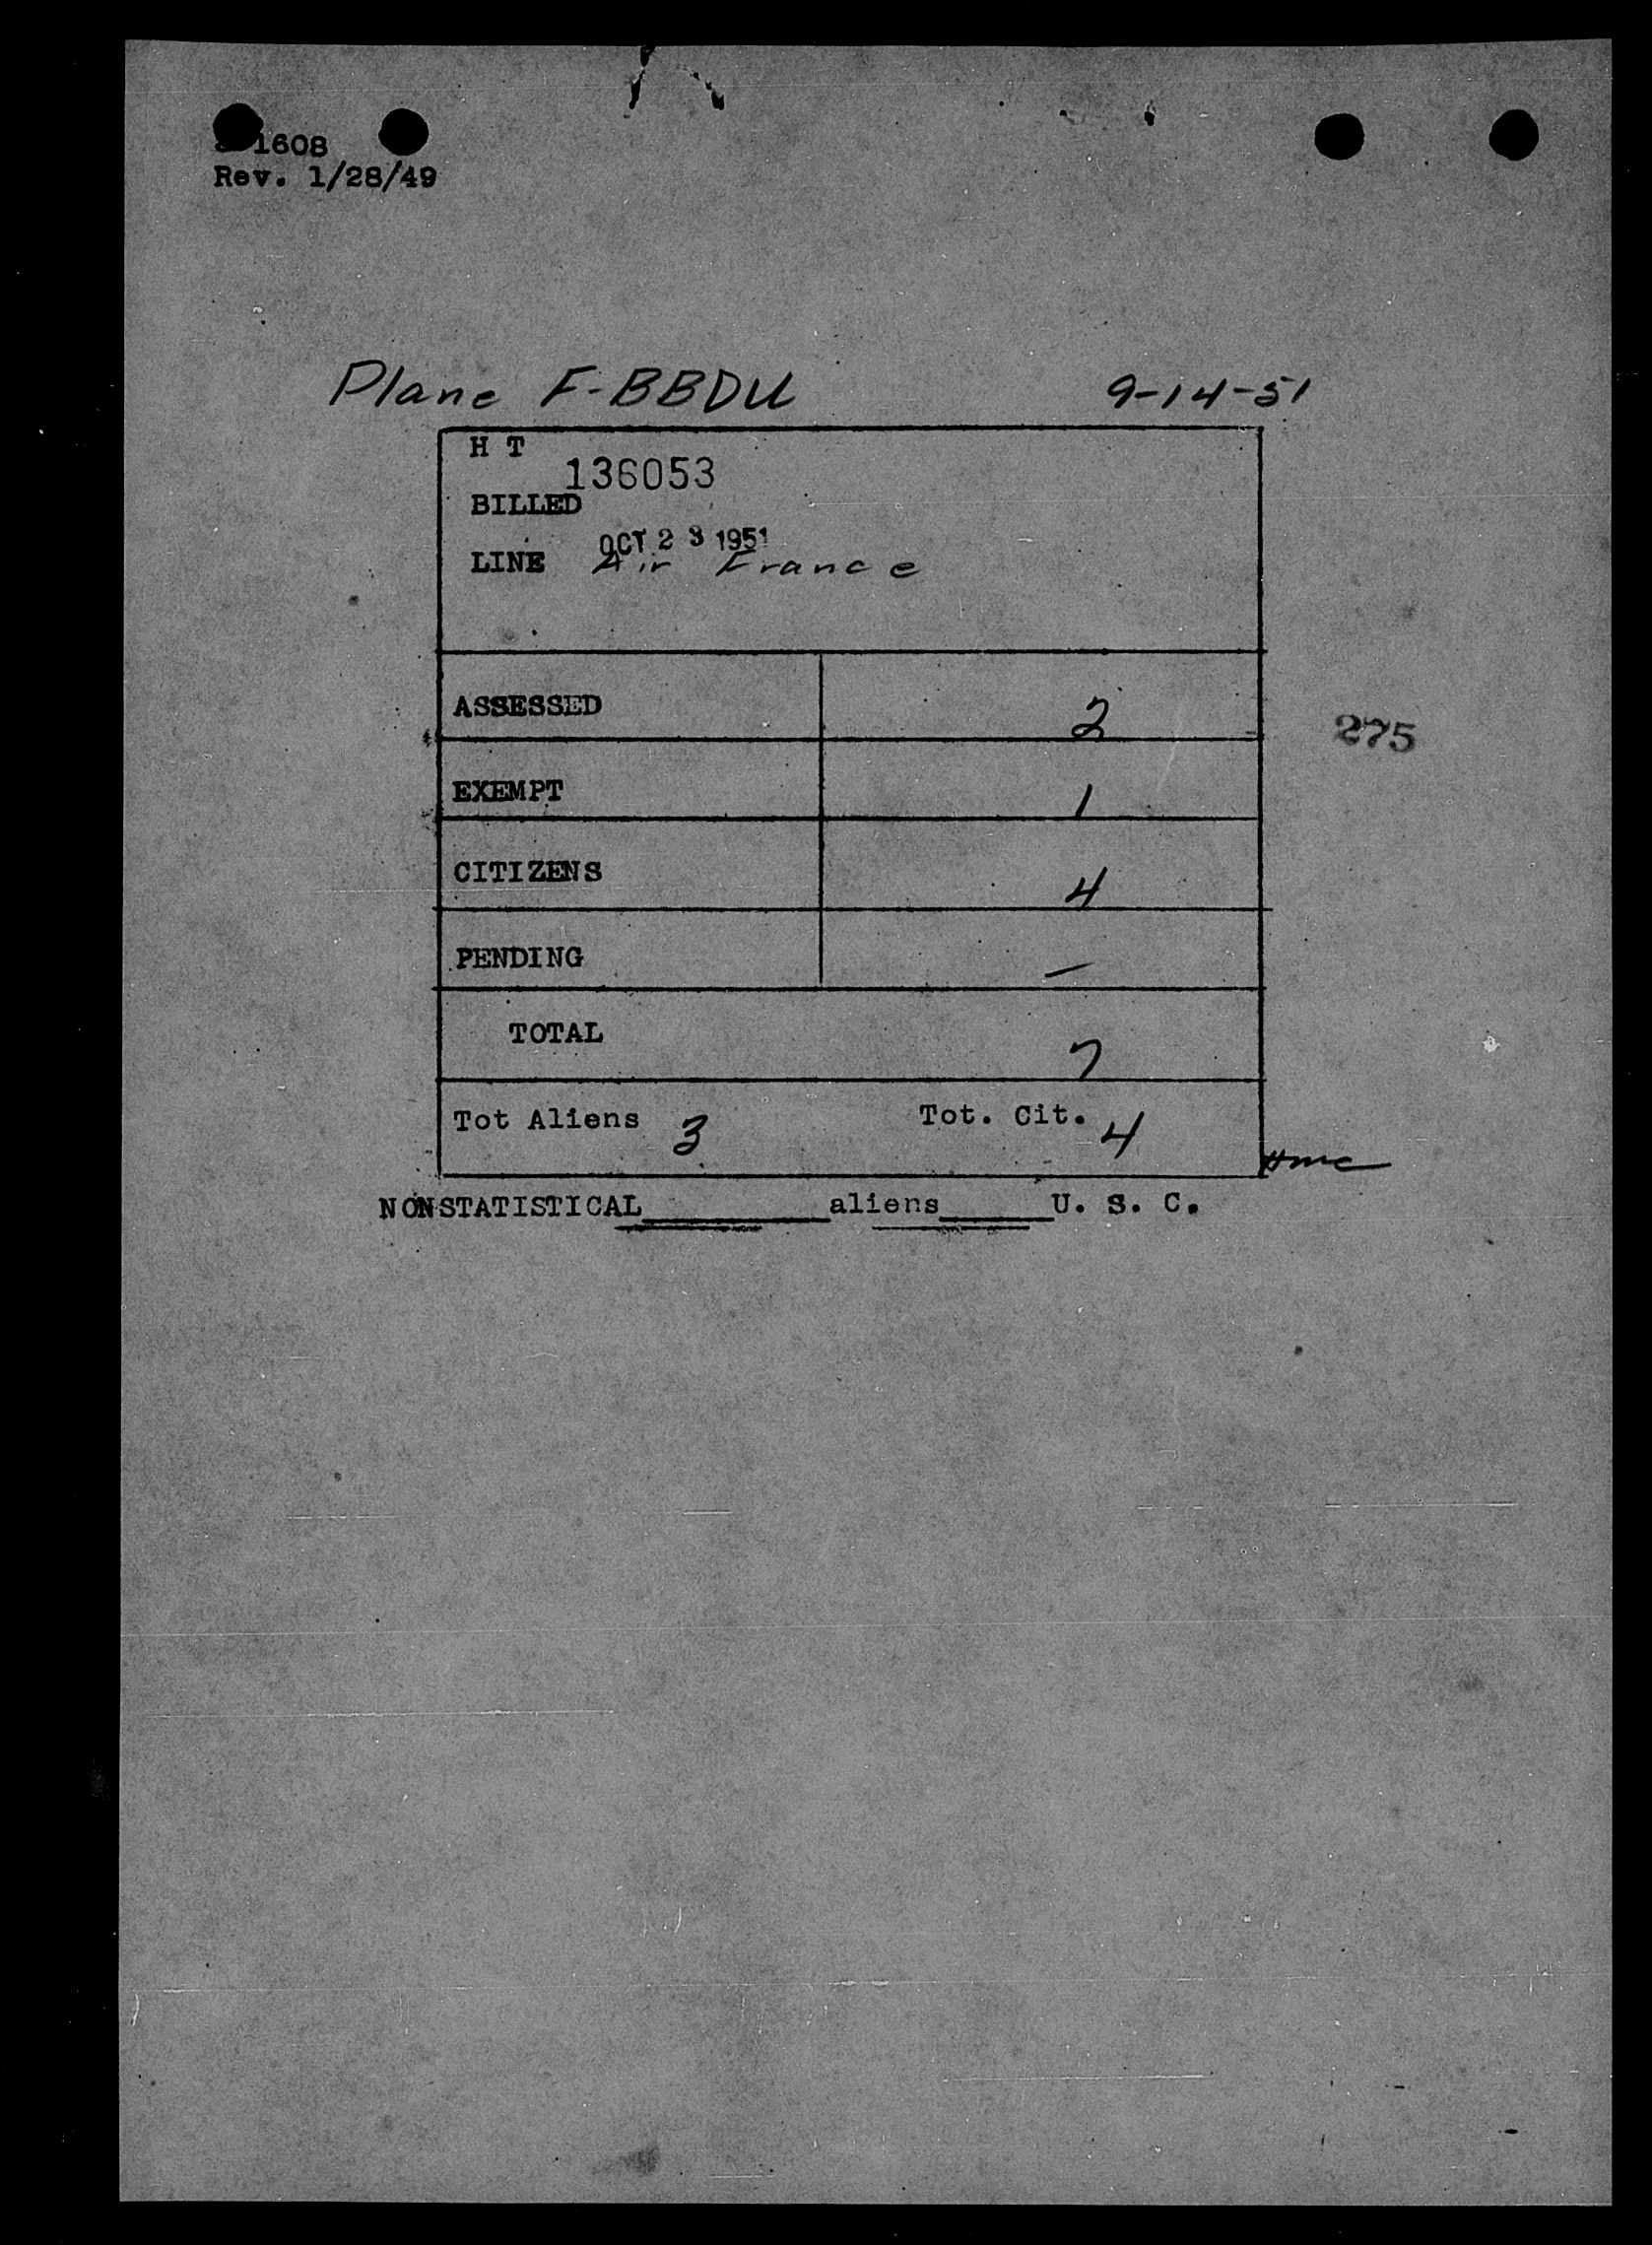 1608
Rev. 1/28/49
Plane F-BBDU 9-14-51
H T
136053
BILLED
OCT 23 1951
LINE Air France
ASSESSED 2
275
EXEMPT 1
CITIZENS 4
PENDING —
TOTAL 7
Tot Aliens 3 Tot. Cit. 4
NONSTATISTICAL______aliens______U. S. C.